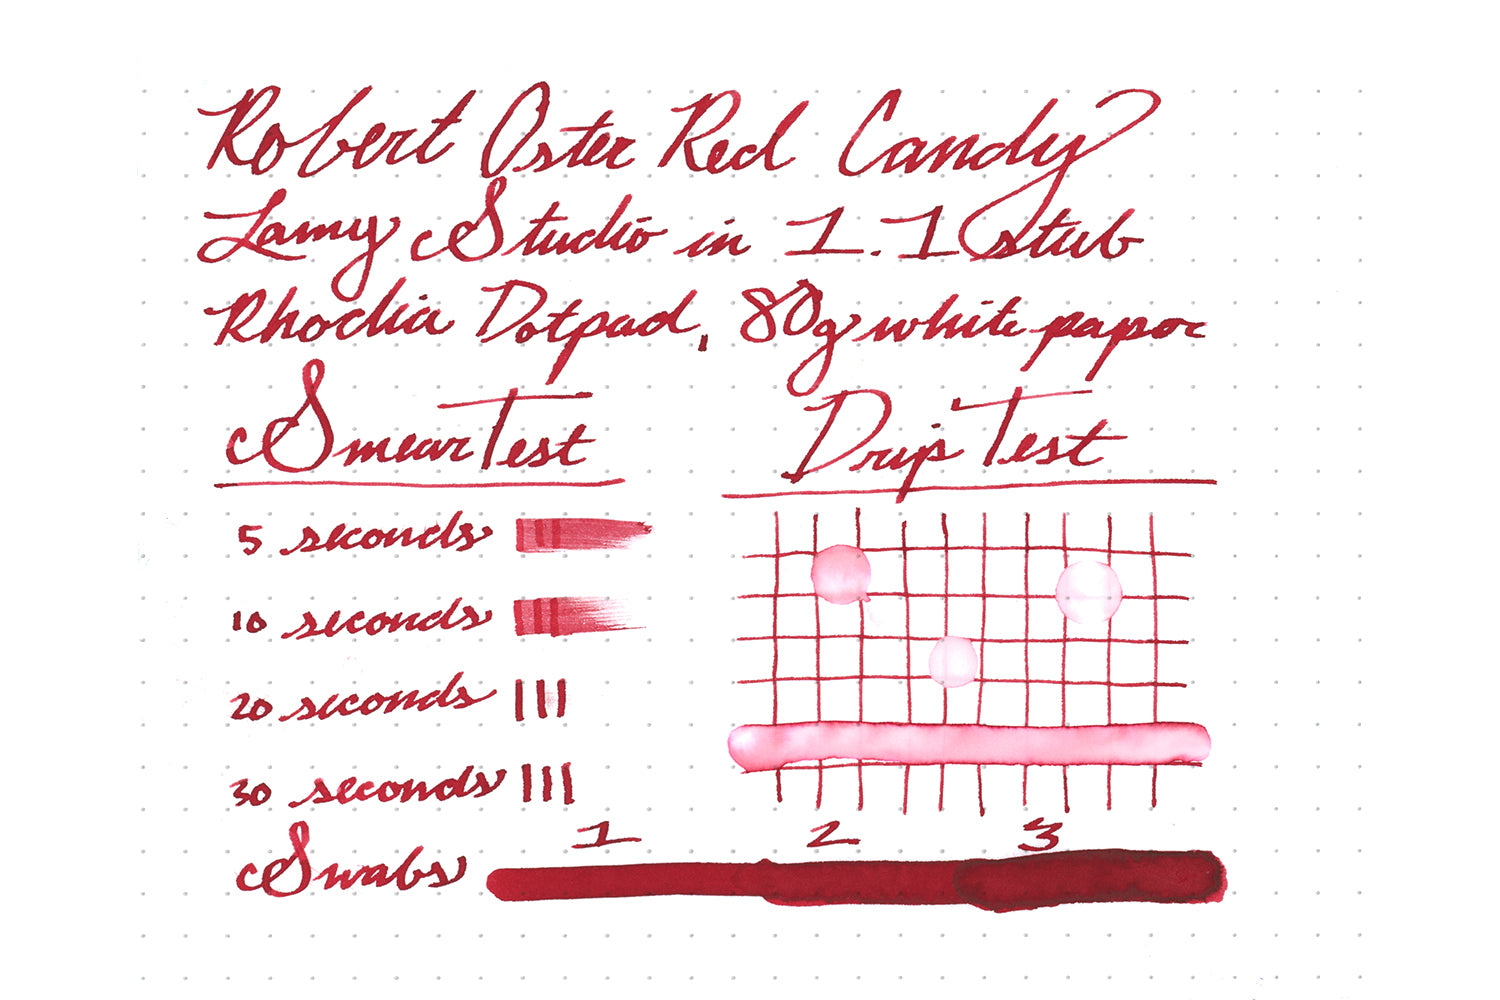 Robert Oster Red Candy
Lamy Studio in 1.1 stub
Rhodia Dotpad, 80g white paper
Smear Test
Drip Test
5 seconds
10 seconds
20 seconds
30 seconds
Swabs
1 2 3